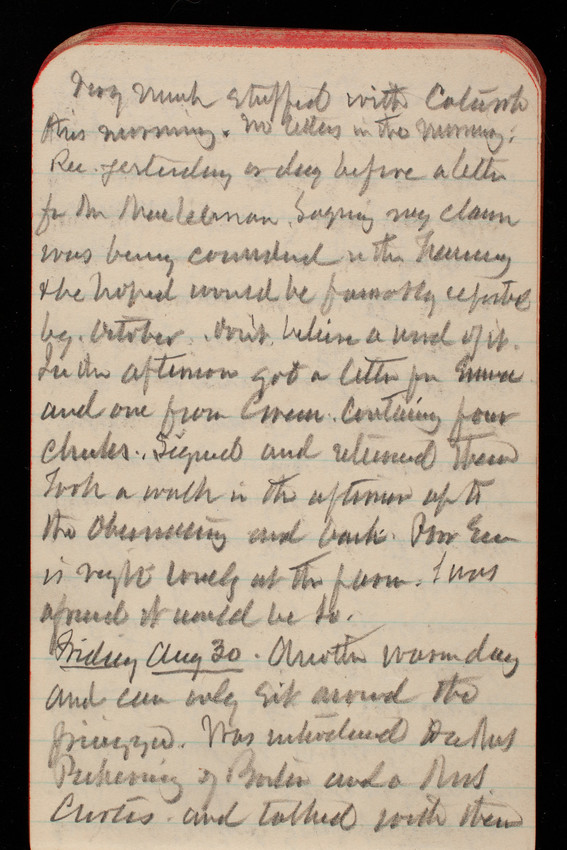 Very much stuffed with Catarrh
this morning. No letters in the morning.
Rec. yesterday or day before a letter
fr Mr Saying my claim
was being considered in the Treasury
& he hoped would be favorably reported
by October. Don't believe a word of it.
In the afternoon got a letter fr Emma
and one from Cowen. Containing four
checks. Signed and returned them
Took a walk in the afternoon up to
the Observatory and back. Poor Em
is right lonely at the farm. I was
afraid it would be so.
Friday Aug 30. Another warm day
and can only sit around the
piazza. Was introduced to a Mrs
Pickering of Boston and a Mrs
Curtis and talked with them